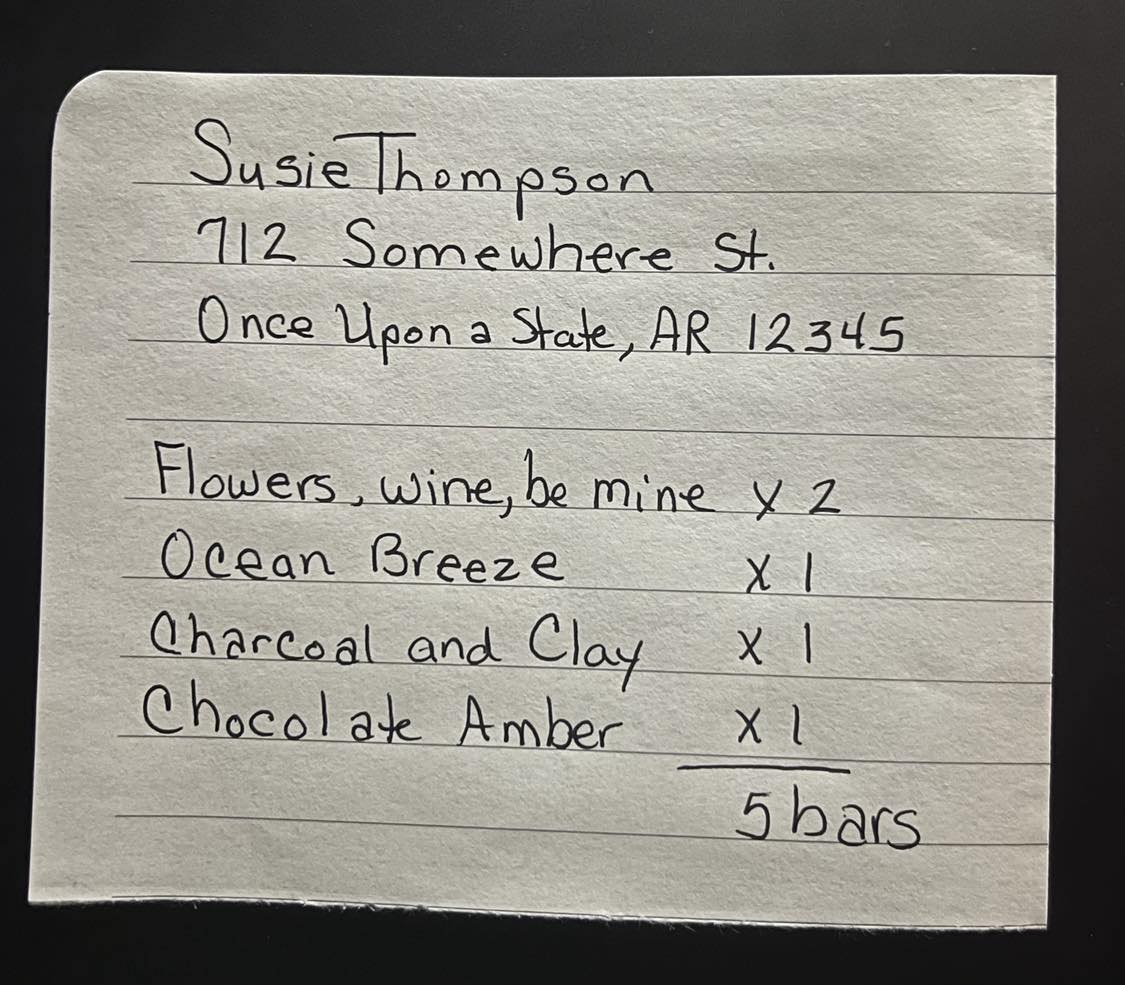 Susie Thompson
712 Somewhere St.
Once Upon a State, AR 12345
Flowers, wine, be mine x 2
Ocean Breeze x 1
Charcoal and Clay x 1
Chocolate Amber x 1
5 bars